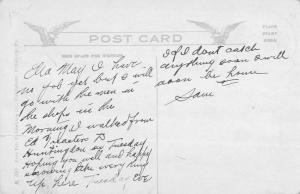 POST CARD
PLACE
STAMP
HERE
Ella May I have
no job yet but I will
go with the men in
the ships in the
Morning I walked from
Ed to
Huntingdon on Tuesday
hoping you well and happy
like every thing
up here Tuesday Eve
If I dont catch
anything soon I will
soon be home
Sam